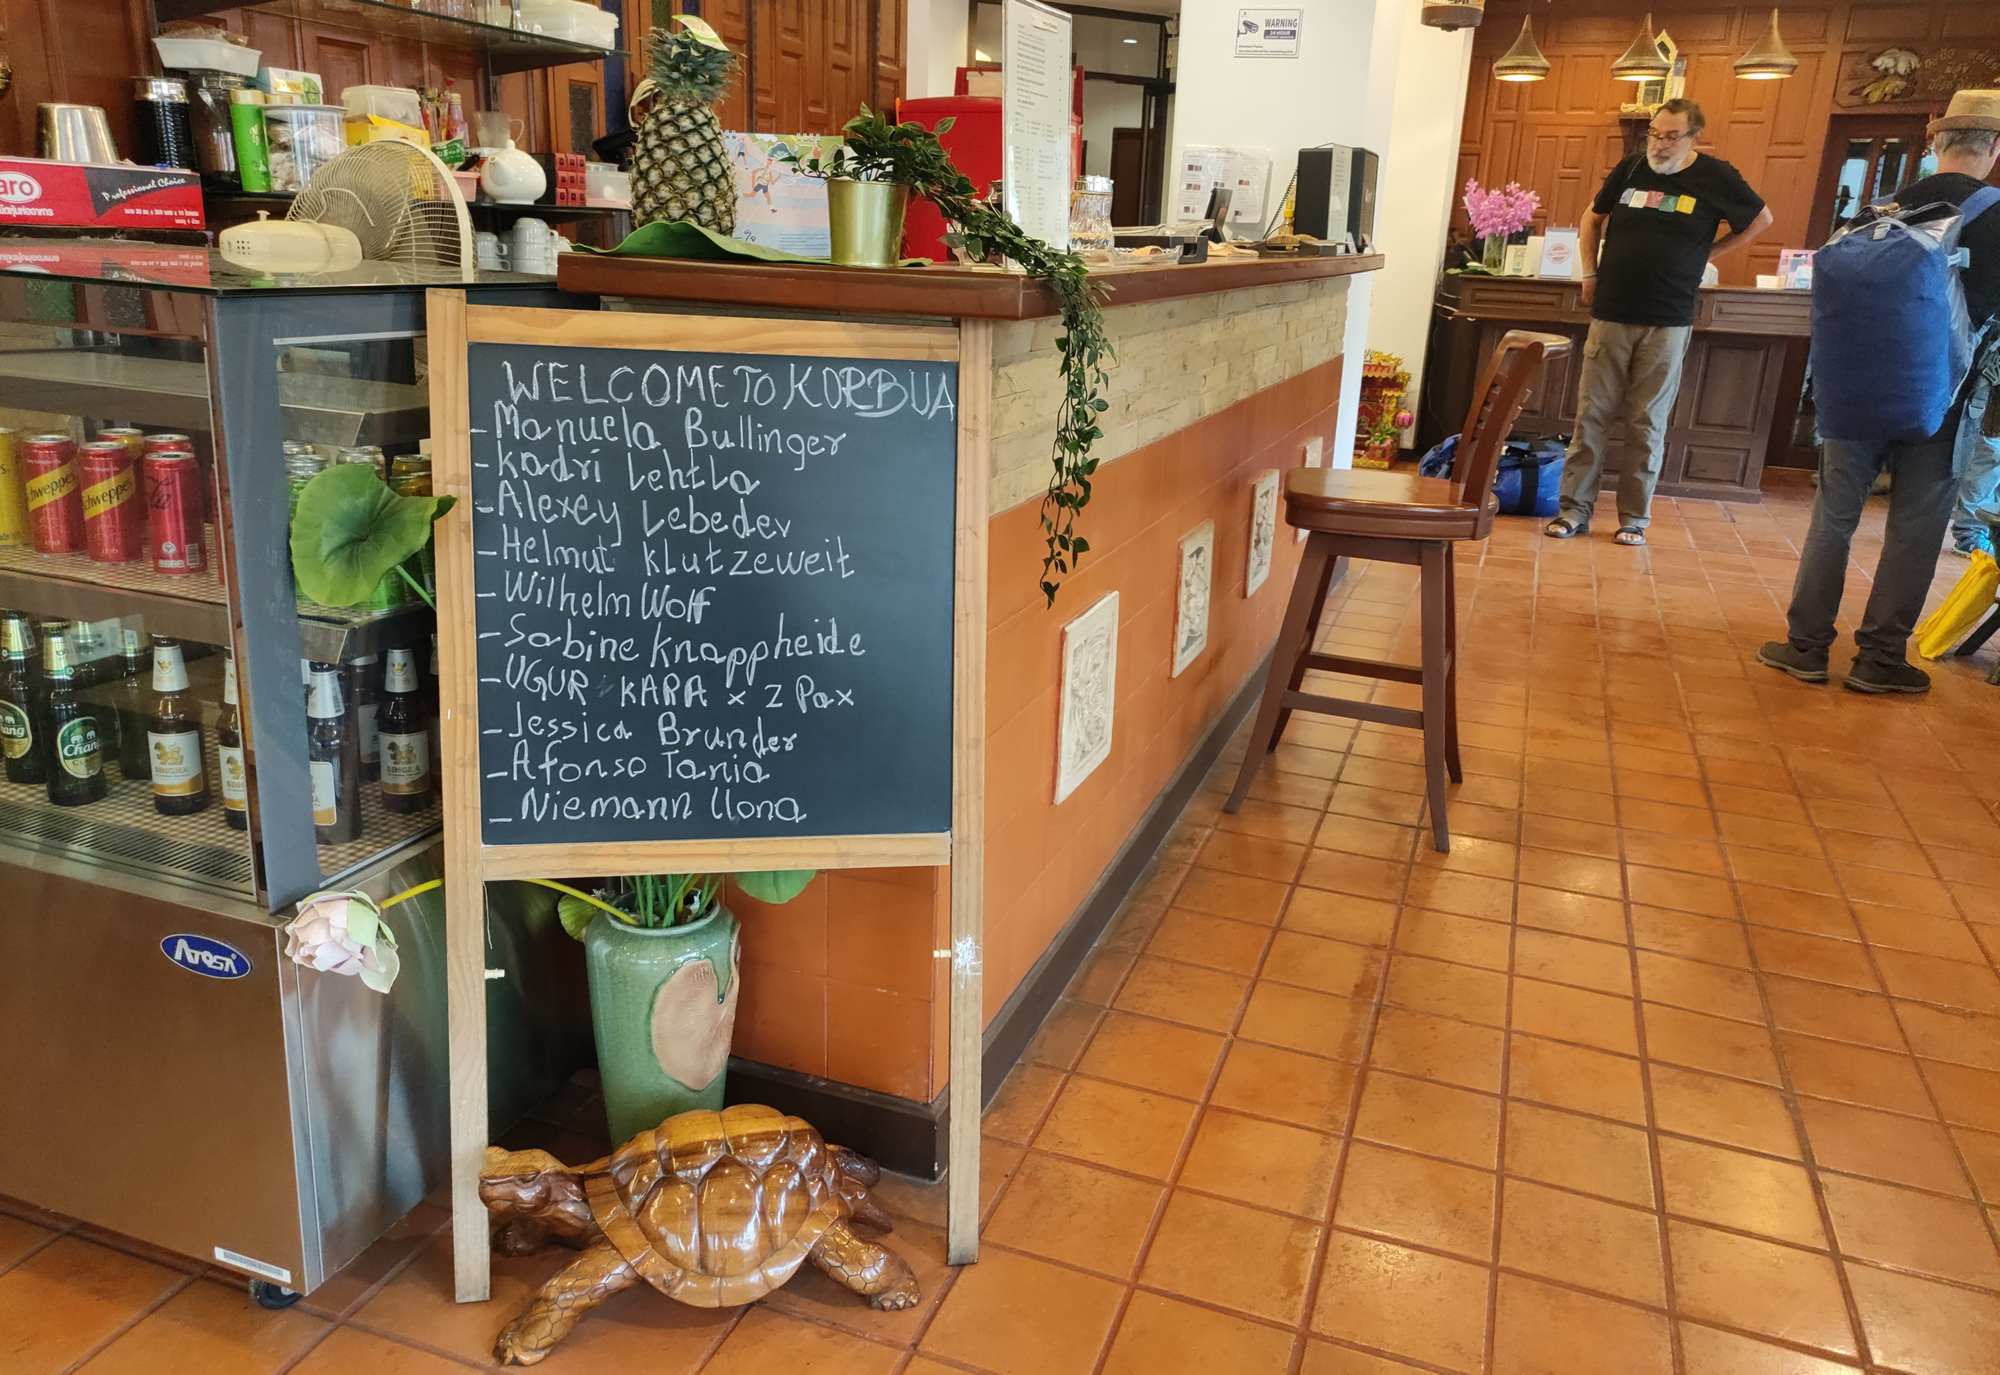 WARNING
24 HOUR
aro
Professional Choice
WELCOME TO KORBUA
- Manuela Bullinger
- Kadri Lehtla
- Alexey Lebedev
- Helmut Klutzeweit
- Wilhelm Wolf
- Sabine Knappheide
- UGUR KARA x 2 Pax
- Jessica Brunder
- Afonso Tania
- Niemann Ilona
Schweppes
Schweppes
Chang
Chang
SINGHA
SINGHA
ATOSA